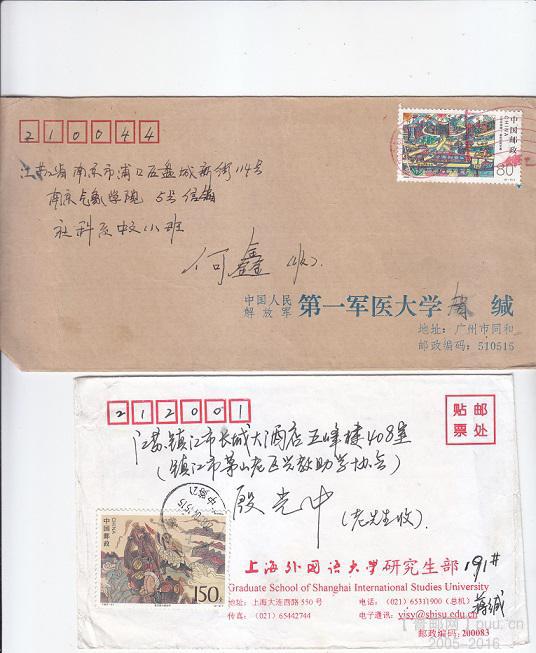 210044
江苏省南京市浦口区盘城新街114号
南京气象学院 5号信箱
社科系中文小班
何鑫 (收)
中国邮政
CHINA
80分
中国人民解放军 第一军医大学 缄
地址: 广州市同和
邮政编码: 510515
212001
贴邮
票处
江苏镇江市长城大酒店五峰楼408室
(镇江市茅山老区兴教助学协会)
殷光中
(老先生收).
中国邮政
CHINA
150分
上海外国语大学研究生部 191#
Graduate School of Shanghai International Studies University
地址: 上海大连西路550号
电话: (021) 65311900 (总机)
传真: (021) 65442744
电子通讯: yjsy@shisu.edu.cn
蒋缄
邮政编码: 200083
puu.cn
2005-2016